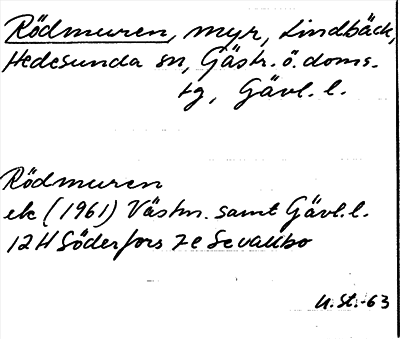 Rödmuren, myr, Lindbäck,
Hedesunda sn, Gästr. ö. doms.
tg, Gävl. l.
Rödmuren
ek (1961) Västm. samt Gävl. l.
12H Söderfors 7e Sevallbo
U. St. -63